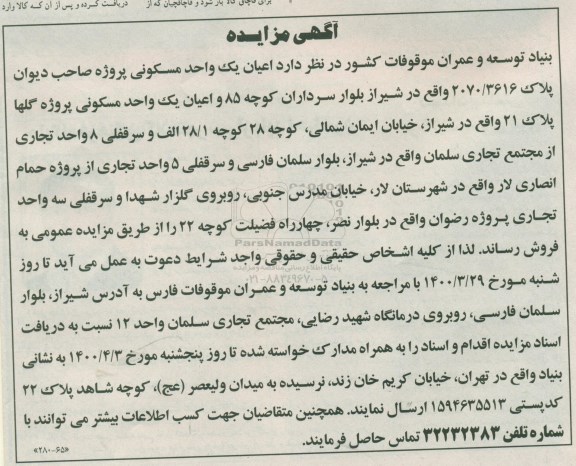 برای قاچاق کالا باز شود و قاچاقچیان که از
دریافت کرده و پس از آن که کالا وارد
آگهی مزایده
بنیاد توسعه و عمران موقوفات کشور در نظر دارد اعیان یک واحد مسکونی پروژه صاحب دیوان
پلاک ۲۰۷۰/۳۶۱۶ واقع در شیراز بلوار سرداران کوچه ۸۵ و اعیان یک واحد مسکونی پروژه گلها
پلاک ۲۱ واقع در شیراز، خیابان ایمان شمالی، کوچه ۲۸ کوچه ۲۸/۱ الف و سرقفلی ۸ واحد تجاری
از مجتمع تجاری سلمان واقع در شیراز، بلوار سلمان فارسی و سرقفلی ۵ واحد تجاری از پروژه حمام
انصاری لار واقع در شهرستان لار، خیابان مدرس جنوبی، روبروی گلزار شهدا و سرقفلی سه واحد
تجاری پروژه رضوان واقع در بلوار نصر، چهارراه فضیلت کوچه ۲۲ را از طریق مزایده عمومی به
فروش رساند. لذا از کلیه اشخاص حقیقی و حقوقی واجد شرایط دعوت به عمل می آید تا روز
شنبه مورخ ۱۴۰۰/۳/۲۹ با مراجعه به بنیاد توسعه و عمران موقوفات فارس به آدرس شیراز، بلوار
سلمان فارسی، روبروی درمانگاه شهید رضایی، مجتمع تجاری سلمان واحد ۱۲ نسبت به دریافت
اسناد مزایده اقدام و اسناد را به همراه مدارک خواسته شده تا روز پنجشنبه مورخ ۱۴۰۰/۴/۳ به نشانی
بنیاد واقع در تهران، خیابان کریم خان زند، نرسیده به میدان ولیعصر (عج)، کوچه شاهد پلاک ۲۲
کدپستی ۱۵۹۴۶۳۵۵۱۳ ارسال نمایند. همچنین متقاضیان جهت کسب اطلاعات بیشتر می توانند با
شماره تلفن ۳۲۲۳۲۳۸۳ تماس حاصل فرمایند.
«۲۸۰-۶۵»
ParsNamadData
پایگاه اطلاع رسانی مناقصه و مزایده
۰۲۱-۸۸۳۴۹۶۷۰-۵